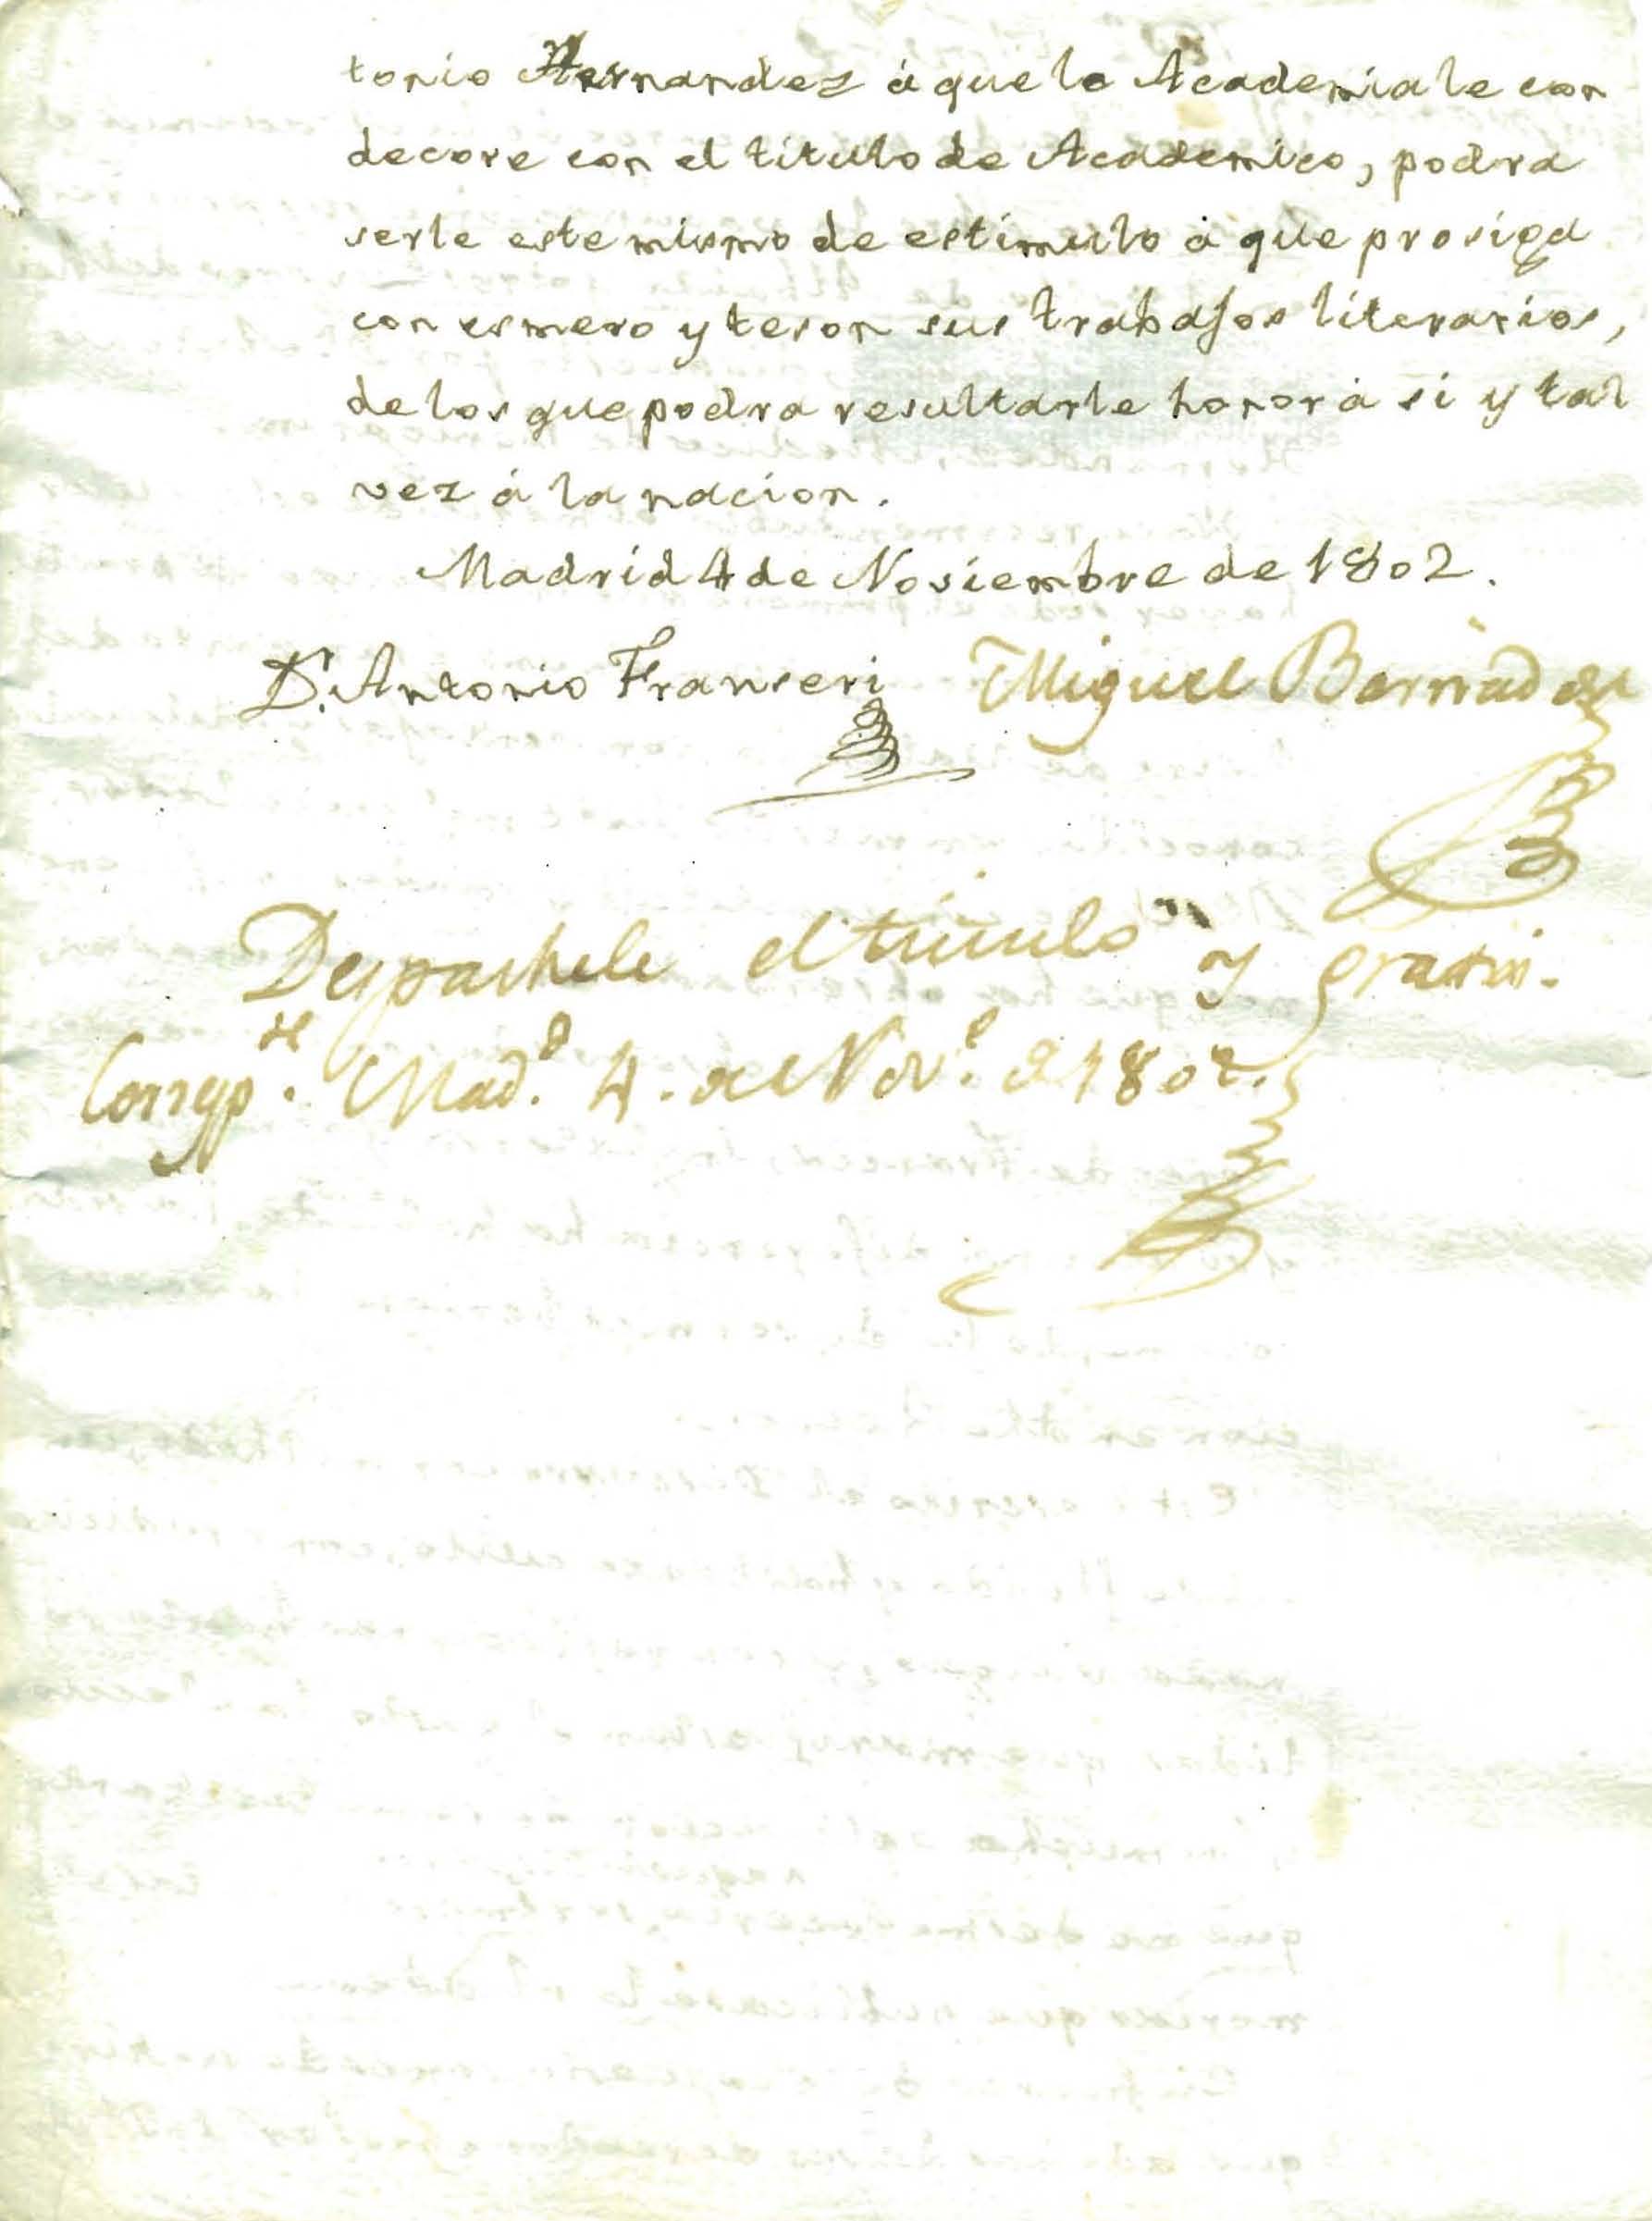 tonio Hernandez á que la Academia le con
decore con el titulo de Academico, podra
serle este mismo de estimulo á que prosiga
con esmero y teson sus trabajos literarios,
de los que podra resultarle honor á si y tal
vez á la nacion.
Madrid 4 de Noviembre de 1802.
Dr. Antonio Franseri Miguel Barnades
Despachele el titulo y gratis.
Mad.d 4. de Nov.e de 1802.